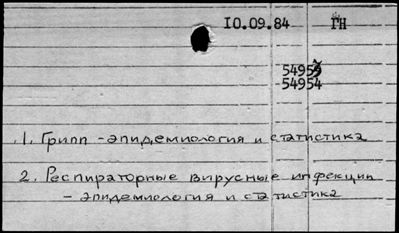 10.09.84 ГН
54953
54954
1. Грипп - эпидемиология и статистика
2. Респираторные вирусные инфекции
- эпидемиология и статистика